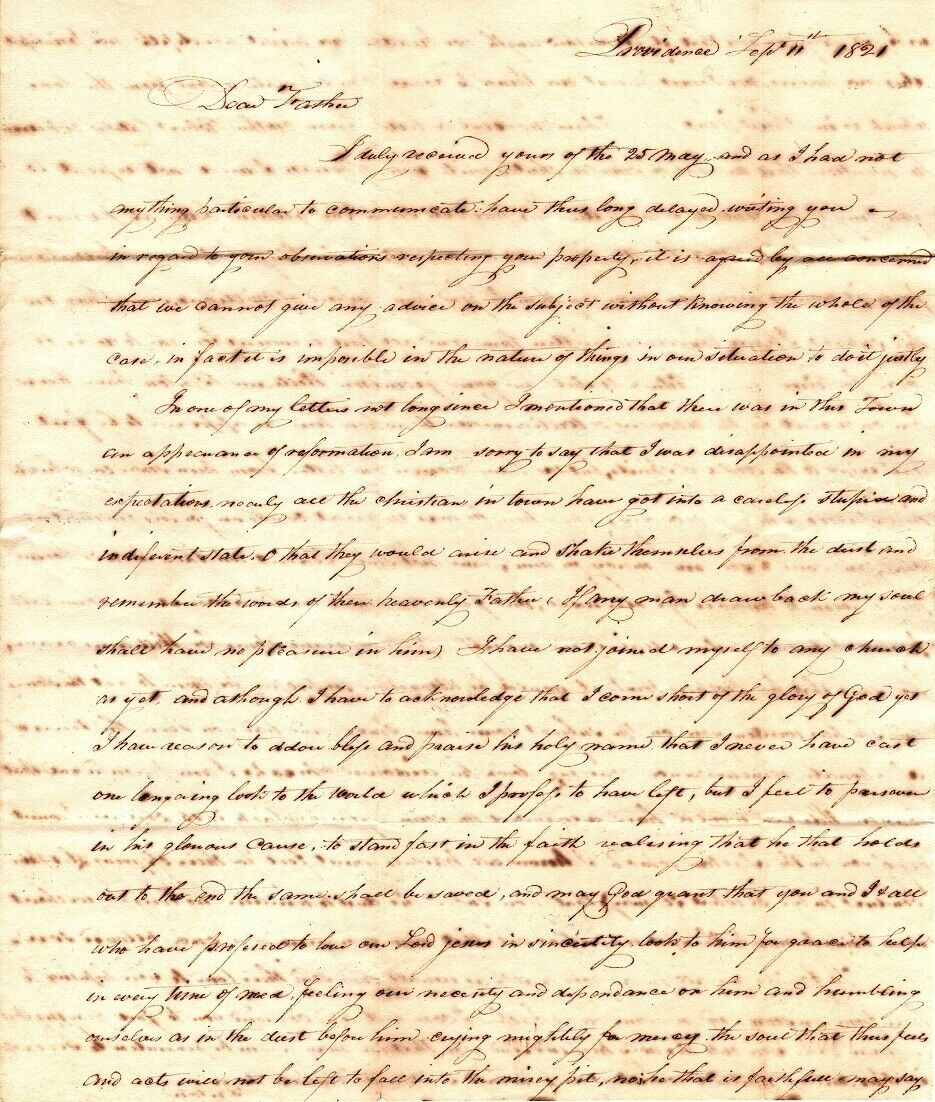 Providence Sept 11th 1821
Dear Father
I duly received yours of the 25 May, and as I had not
any thing particular to communicate have thus long delayed writing you
in regard to your observations respecting your property, it is agreed by all concerned
that we cannot give any advice on the subject without knowing the whole of the
case, in fact it is imposible in the nature of things in our situation to do it justly
In one of my letters not long since I mentioned that there was in this Town
an appearance of reformation, I am sorry to say that I was disappointed in my
expectations, nearly all the christian in town have got into a careless stupid and
indiferent state, O that they would arise and shake themselves from the dust and
remember the words of their heavenly Father (If any man draw back my soul
shall have no pleasure in him) I have not joined myself to any church
as yet, and athough I have to acknowledge that I come short of the glory of God yet
I have reason to adore bless and praise his holy name that I never have cast
one longing look to the world which I profess to have left, but I feel to persever
in his glorious cause, to stand fast in the faith realising that he that holds
out to the end the same shall be saved, and may God grant that you and I & all
who have profesed to love our Lord jesus in sincerity, look to him for grace to help
in every time of need, feeling our necesity and dependance on him and humbling
ourselves as in the dust before him crying mightily for mercy, the soul that thus feels
and acts will not be left to fall into the mirey pit, no, he that is faithfull may say